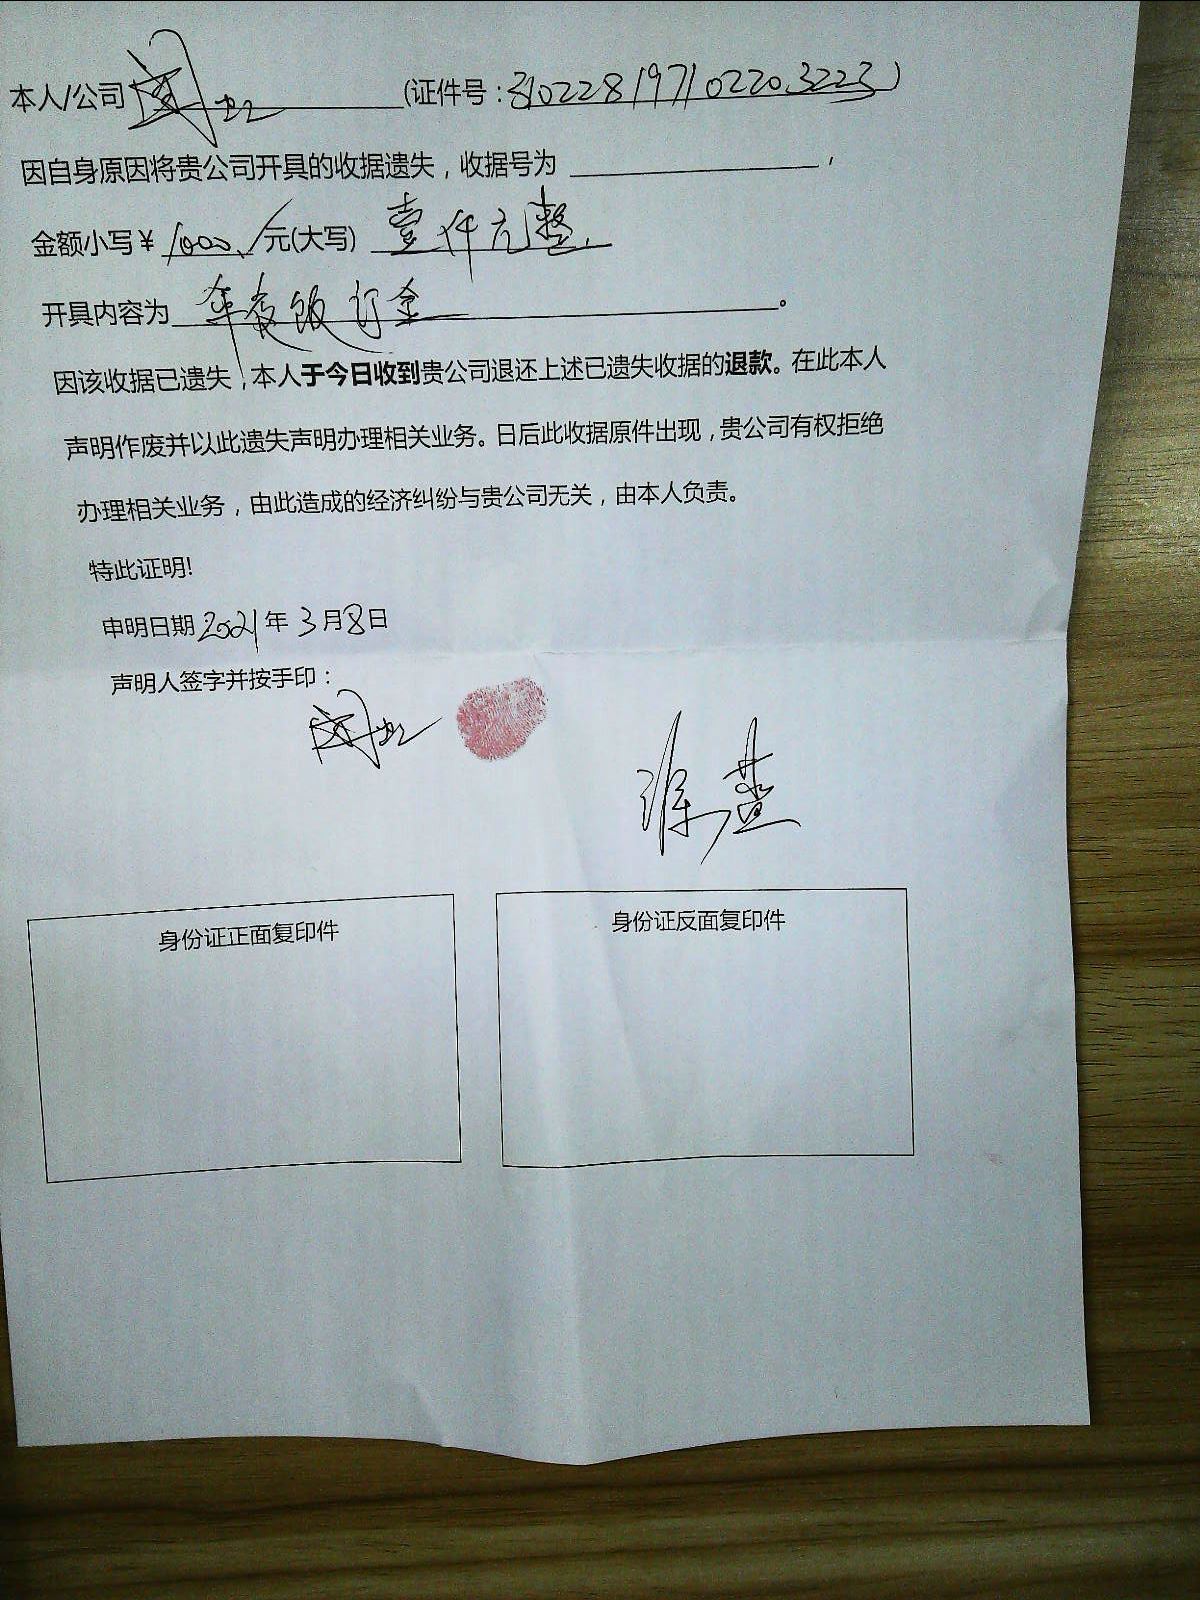 本人/公司 (证件号：310228197102203223)
因自身原因将贵公司开具的收据遗失，收据号为，
金额小写￥1000./元(大写) 壹仟元整.
开具内容为年夜饭订金。
因该收据已遗失，本人于今日收到贵公司退还上述已遗失收据的退款。在此本人
声明作废并以此遗失声明办理相关业务。日后此收据原件出现，贵公司有权拒绝
办理相关业务，由此造成的经济纠纷与贵公司无关，由本人负责。
特此证明!
申明日期2021年3月8日
声明人签字并按手印：
身份证正面复印件
身份证反面复印件